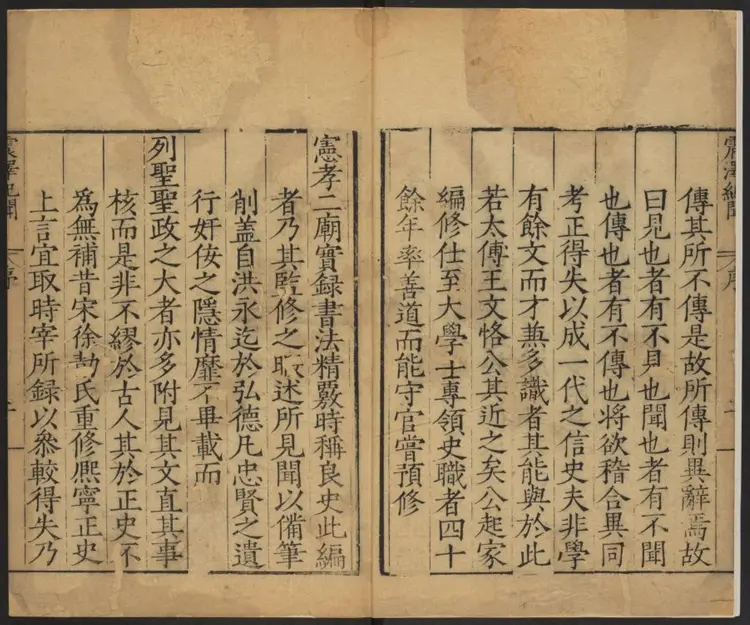 震澤紀聞 序
傳其所不傳是故所傳則異辭焉故
曰見也者有不見也聞也者有不聞
也傳也者有不傳也將欲稽合異同
考正得失以成一代之信史夫非學
有餘文而才兼多識者其能與於此
若太傅王文恪公其近之矣公起家
編修仕至大學士專領史職者四十
餘年率善道而能守官嘗預修
憲孝二廟實録書法精覈時稱良史此編
者乃其監修之暇述所見聞以備筆
削盖自洪永迄於弘德凡忠賢之遺
行奸佞之隱情靡不畢載而
列聖聖政之大者亦多附見其文直其事
核而是非不繆於古人其於正史不
爲無補昔宋徐勣氏重修熈寧正史
上言宜取時宰所録以叅較得失乃
震澤紀聞 序